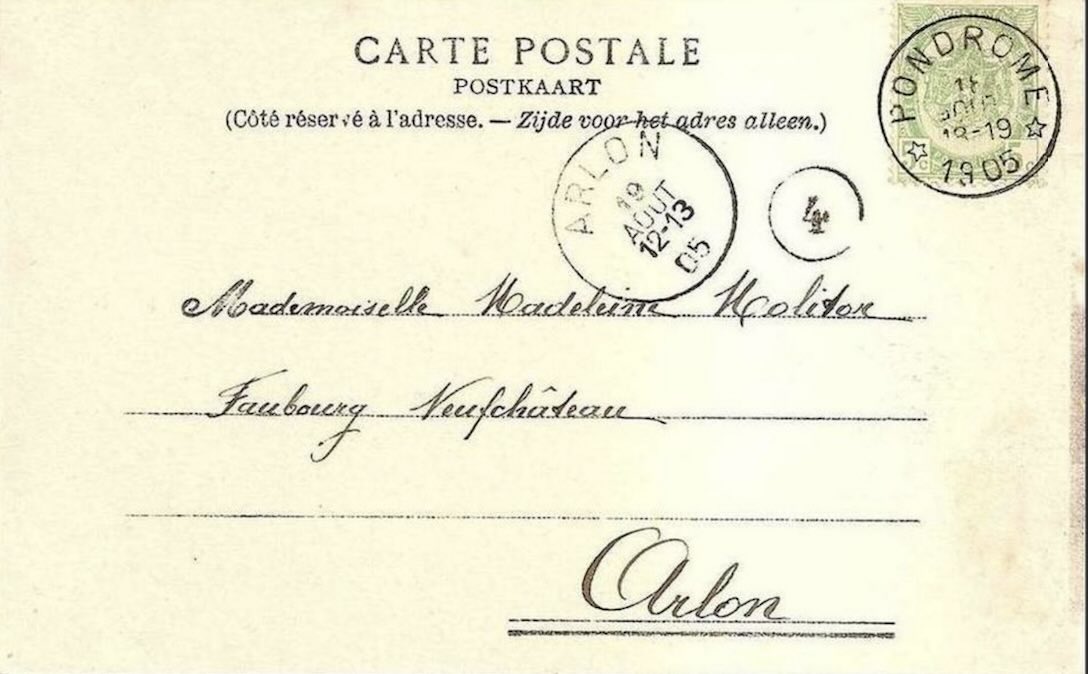 CARTE POSTALE
POSTKAART
(Côté réservé à l'adresse. — Zijde voor het adres alleen.)
PONDROME
AOUT
18-19
1905
ARLON
19
AOUT
12-13
05
4
Mademoiselle Madeleine Molitor
Faubourg Neufchâteau
Arlon